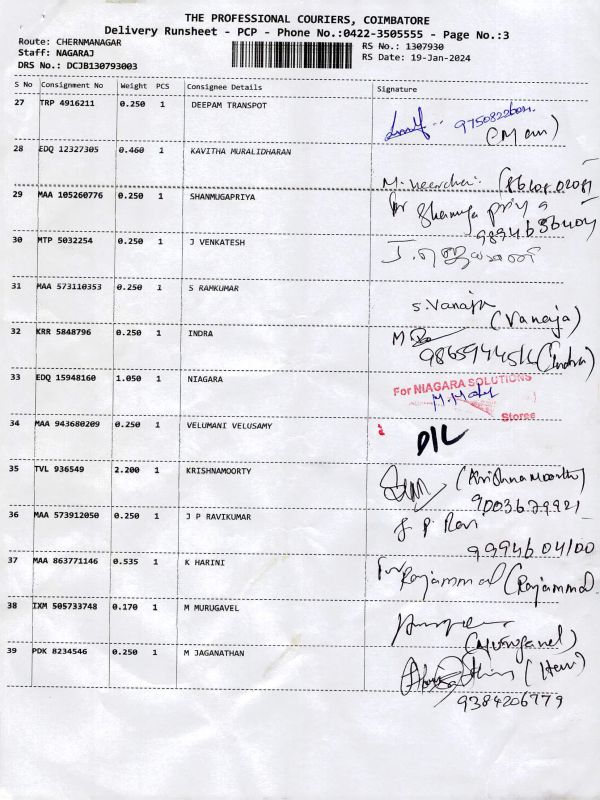 THE PROFESSIONAL COURIERS, COIMBATORE
Delivery Runsheet - PCP - Phone No.:0422-3505555 - Page No.:3
Route: CHERNMANAGAR
RS No.: 1307930
Staff: NAGARAJ
RS Date: 19-Jan-2024
DRS No.: DCJB130793003
S No Consignment No Weight PCS Consignee Details Signature
27 TRP 4916211 0.250 1 DEEPAM TRANSPOT
(Mani)
28 EDQ 12327305 0.460 1 KAVITHA MURALIDHARAN
29 MAA 105260776 0.250 1 SHANMUGAPRIYA
for Shanmuga priya
9894636404
30 MTP 5032254 0.250 1 J VENKATESH
31 MAA 573110353 0.250 1 S RAMKUMAR
S. Vanaja
(Vanaja)
32 KRR 5848796 0.250 1 INDRA
(Indra)
33 EDQ 15948160 1.050 1 NIAGARA
For NIAGARA SOLUTIONS
Stores
34 MAA 943680209 0.250 1 VELUMANI VELUSAMY
D/L
35 TVL 936549 2.200 1 KRISHNAMOORTY
(Krishnamoorthy)
9003679921
36 MAA 573912050 0.250 1 J P RAVIKUMAR
J P Ravi
9994604100
37 MAA 863771146 0.535 1 K HARINI
Rajammal (Rajammal)
38 IXM 505733748 0.170 1 M MURUGAVEL
(Murugavel)
39 PDK 8234546 0.250 1 M JAGANATHAN
(Hari)
9384206779